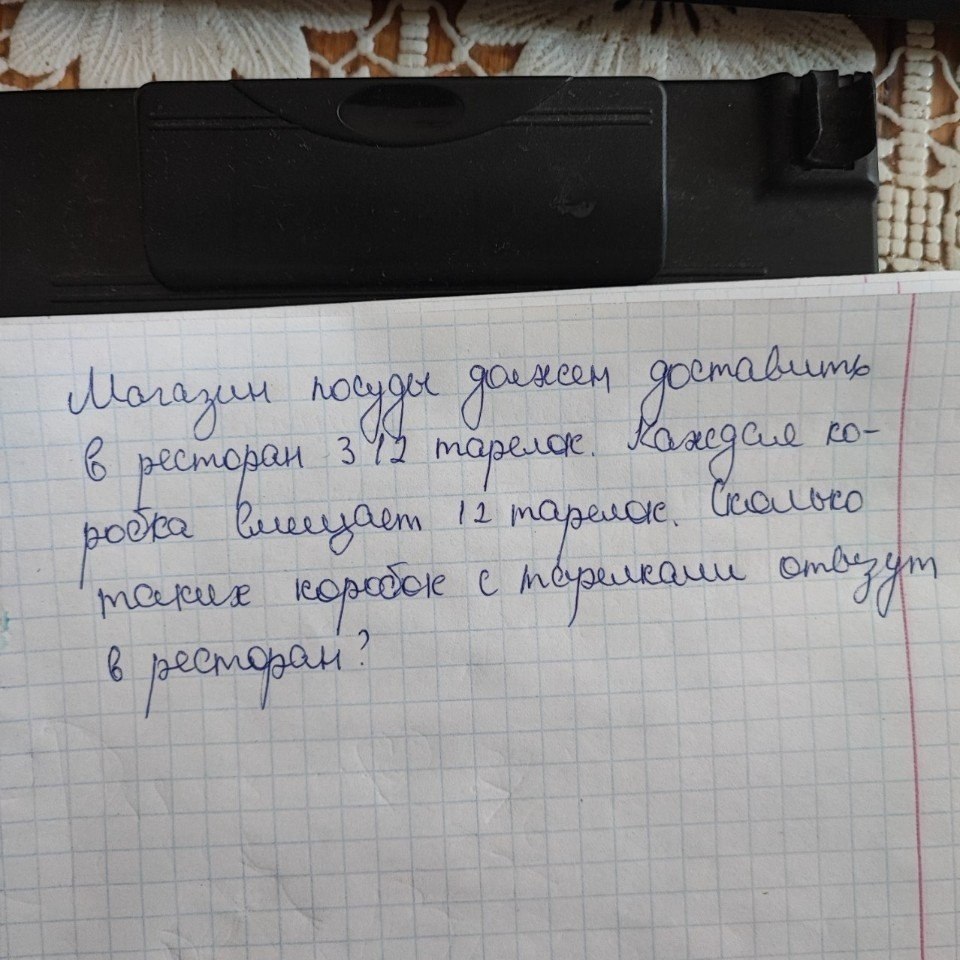 Магазин посуды должен доставить
в ресторан 312 тарелок. Каждая ко-
робка вмещает 12 тарелок. Сколько
таких коробок с тарелками отвезут
в ресторан?